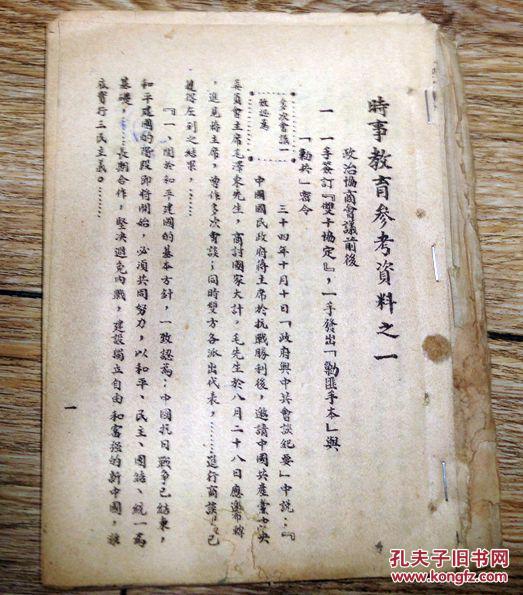 時事教育参考資料之一
政治協商會議前後
一 一手簽訂『雙十協定』，一手發出「勦匪手本」與
「勦共」密令
多次會議一
致認爲
三十四年十月十日「政府與中共會談紀要」中說：『
中國國民政府蔣主席於抗戰勝利後，邀請中國共產黨中央
委員會主席毛澤東先生，商討國家大計，毛先生於八月二十八日應邀
，進見蔣主席，曾作多次會談；同時雙方各派出代表，………進行商談，已
獲得左列之結果，……
『一、關於和平建國的基本方針，一致認爲：中國抗日戰爭已結束，
和平建國的階段即將開始，必須共同努力，以和平、民主、團結、統一爲
基礎，……長期合作，堅決避免內戰，建設獨立自由和富強的新中國，
底實行三民主義。……
一
孔夫子旧书网
www.kongfz.com